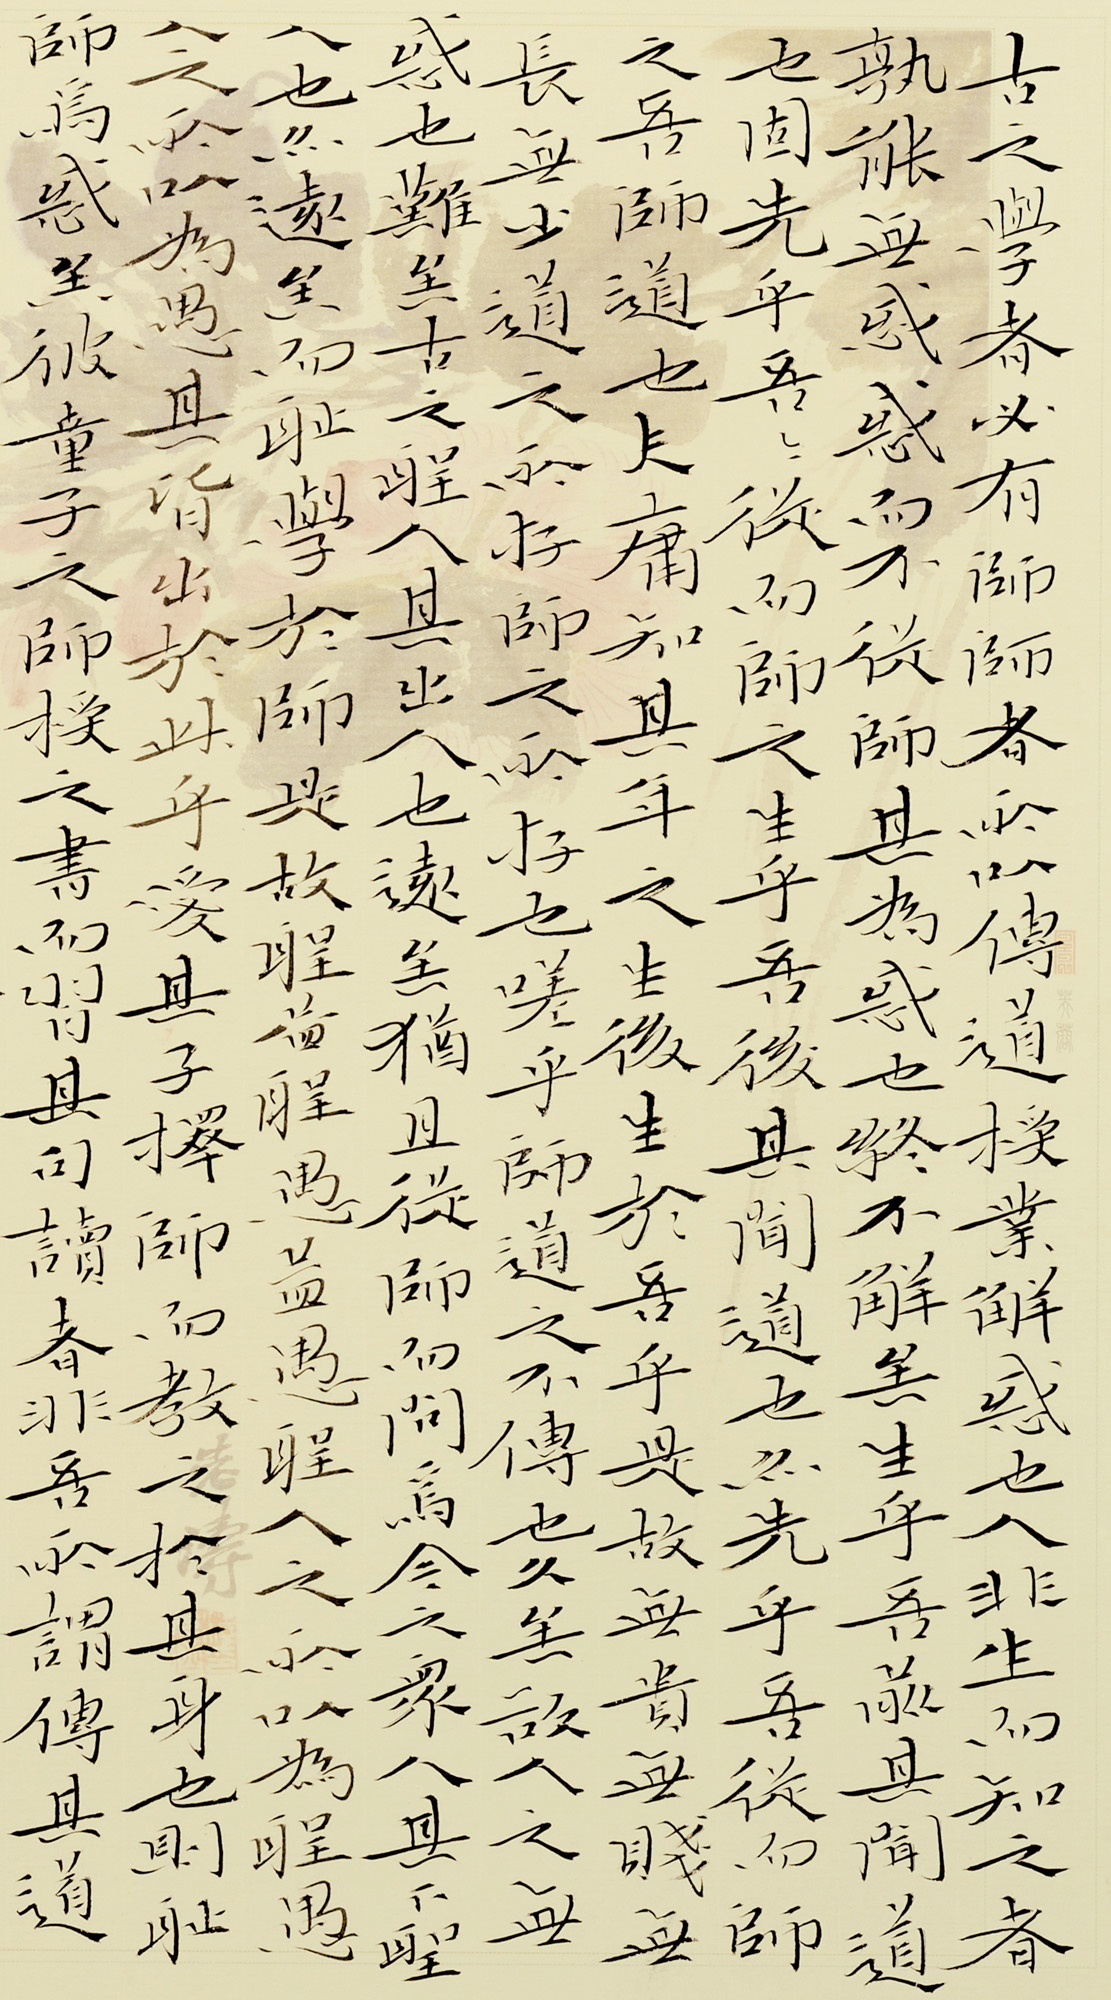 古之學者必有師師者所以傳道授業解惑也人非生而知之者
孰能無惑惑而不從師其為惑也終不解矣生乎吾前其聞道
也固先乎吾〻從而師之生乎吾後其聞道也亦先乎吾從而師
之吾師道也夫庸知其年之生後生於吾乎是故無貴無賤無
長無少道之所存師之所存也嗟乎師道之不傳也久矣欲人之無
惑也難矣古之聖人其出人也遠矣猶且從師而問焉今之衆人其下聖
人也亦遠矣而耻學於師是故聖益聖愚益愚聖人之所以為聖愚
人之所以為愚其皆出於此乎愛其子擇師而教之於其身也則耻
師焉惑矣彼童子之師授之書而習其句讀者非吾所謂傳其道